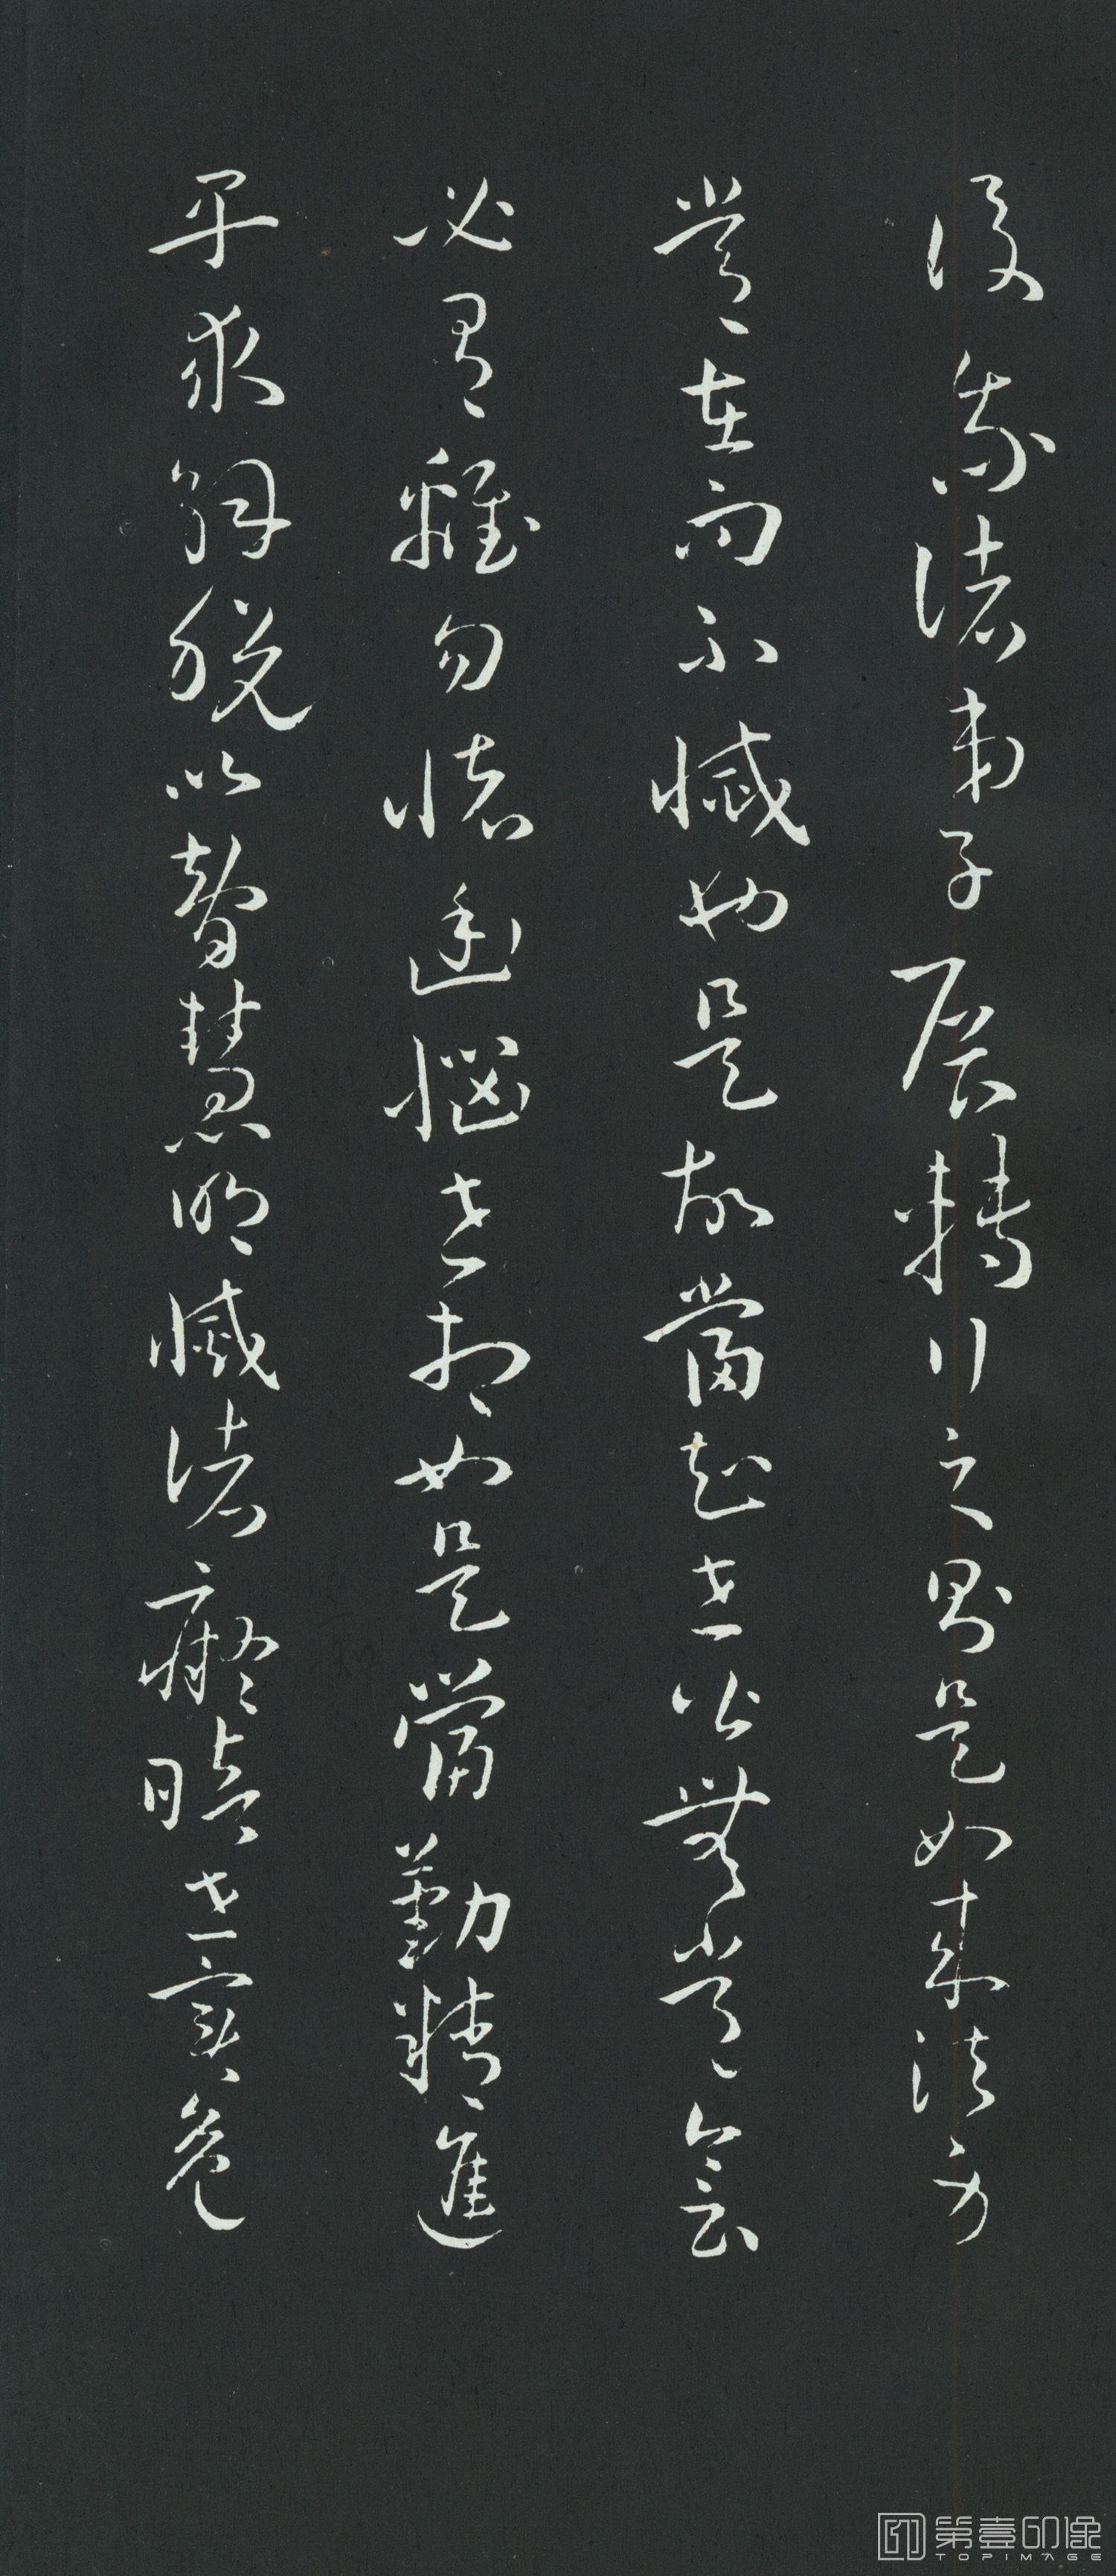 後我諸弟子展轉行之則是如來法身
常在而不滅也是故當知世皆無常會
必有離勿懷憂惱世相如是當勤精進
早求解脫以智慧明滅諸癡暗世實危
第壹印像
TOPIMAGE